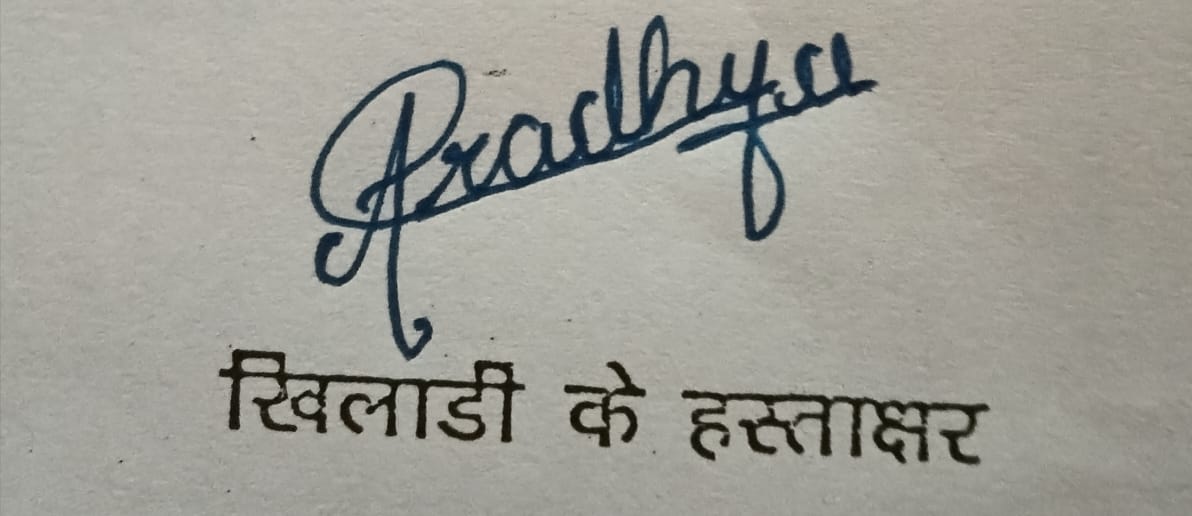 Aradhya
खिलाडी के हस्ताक्षर